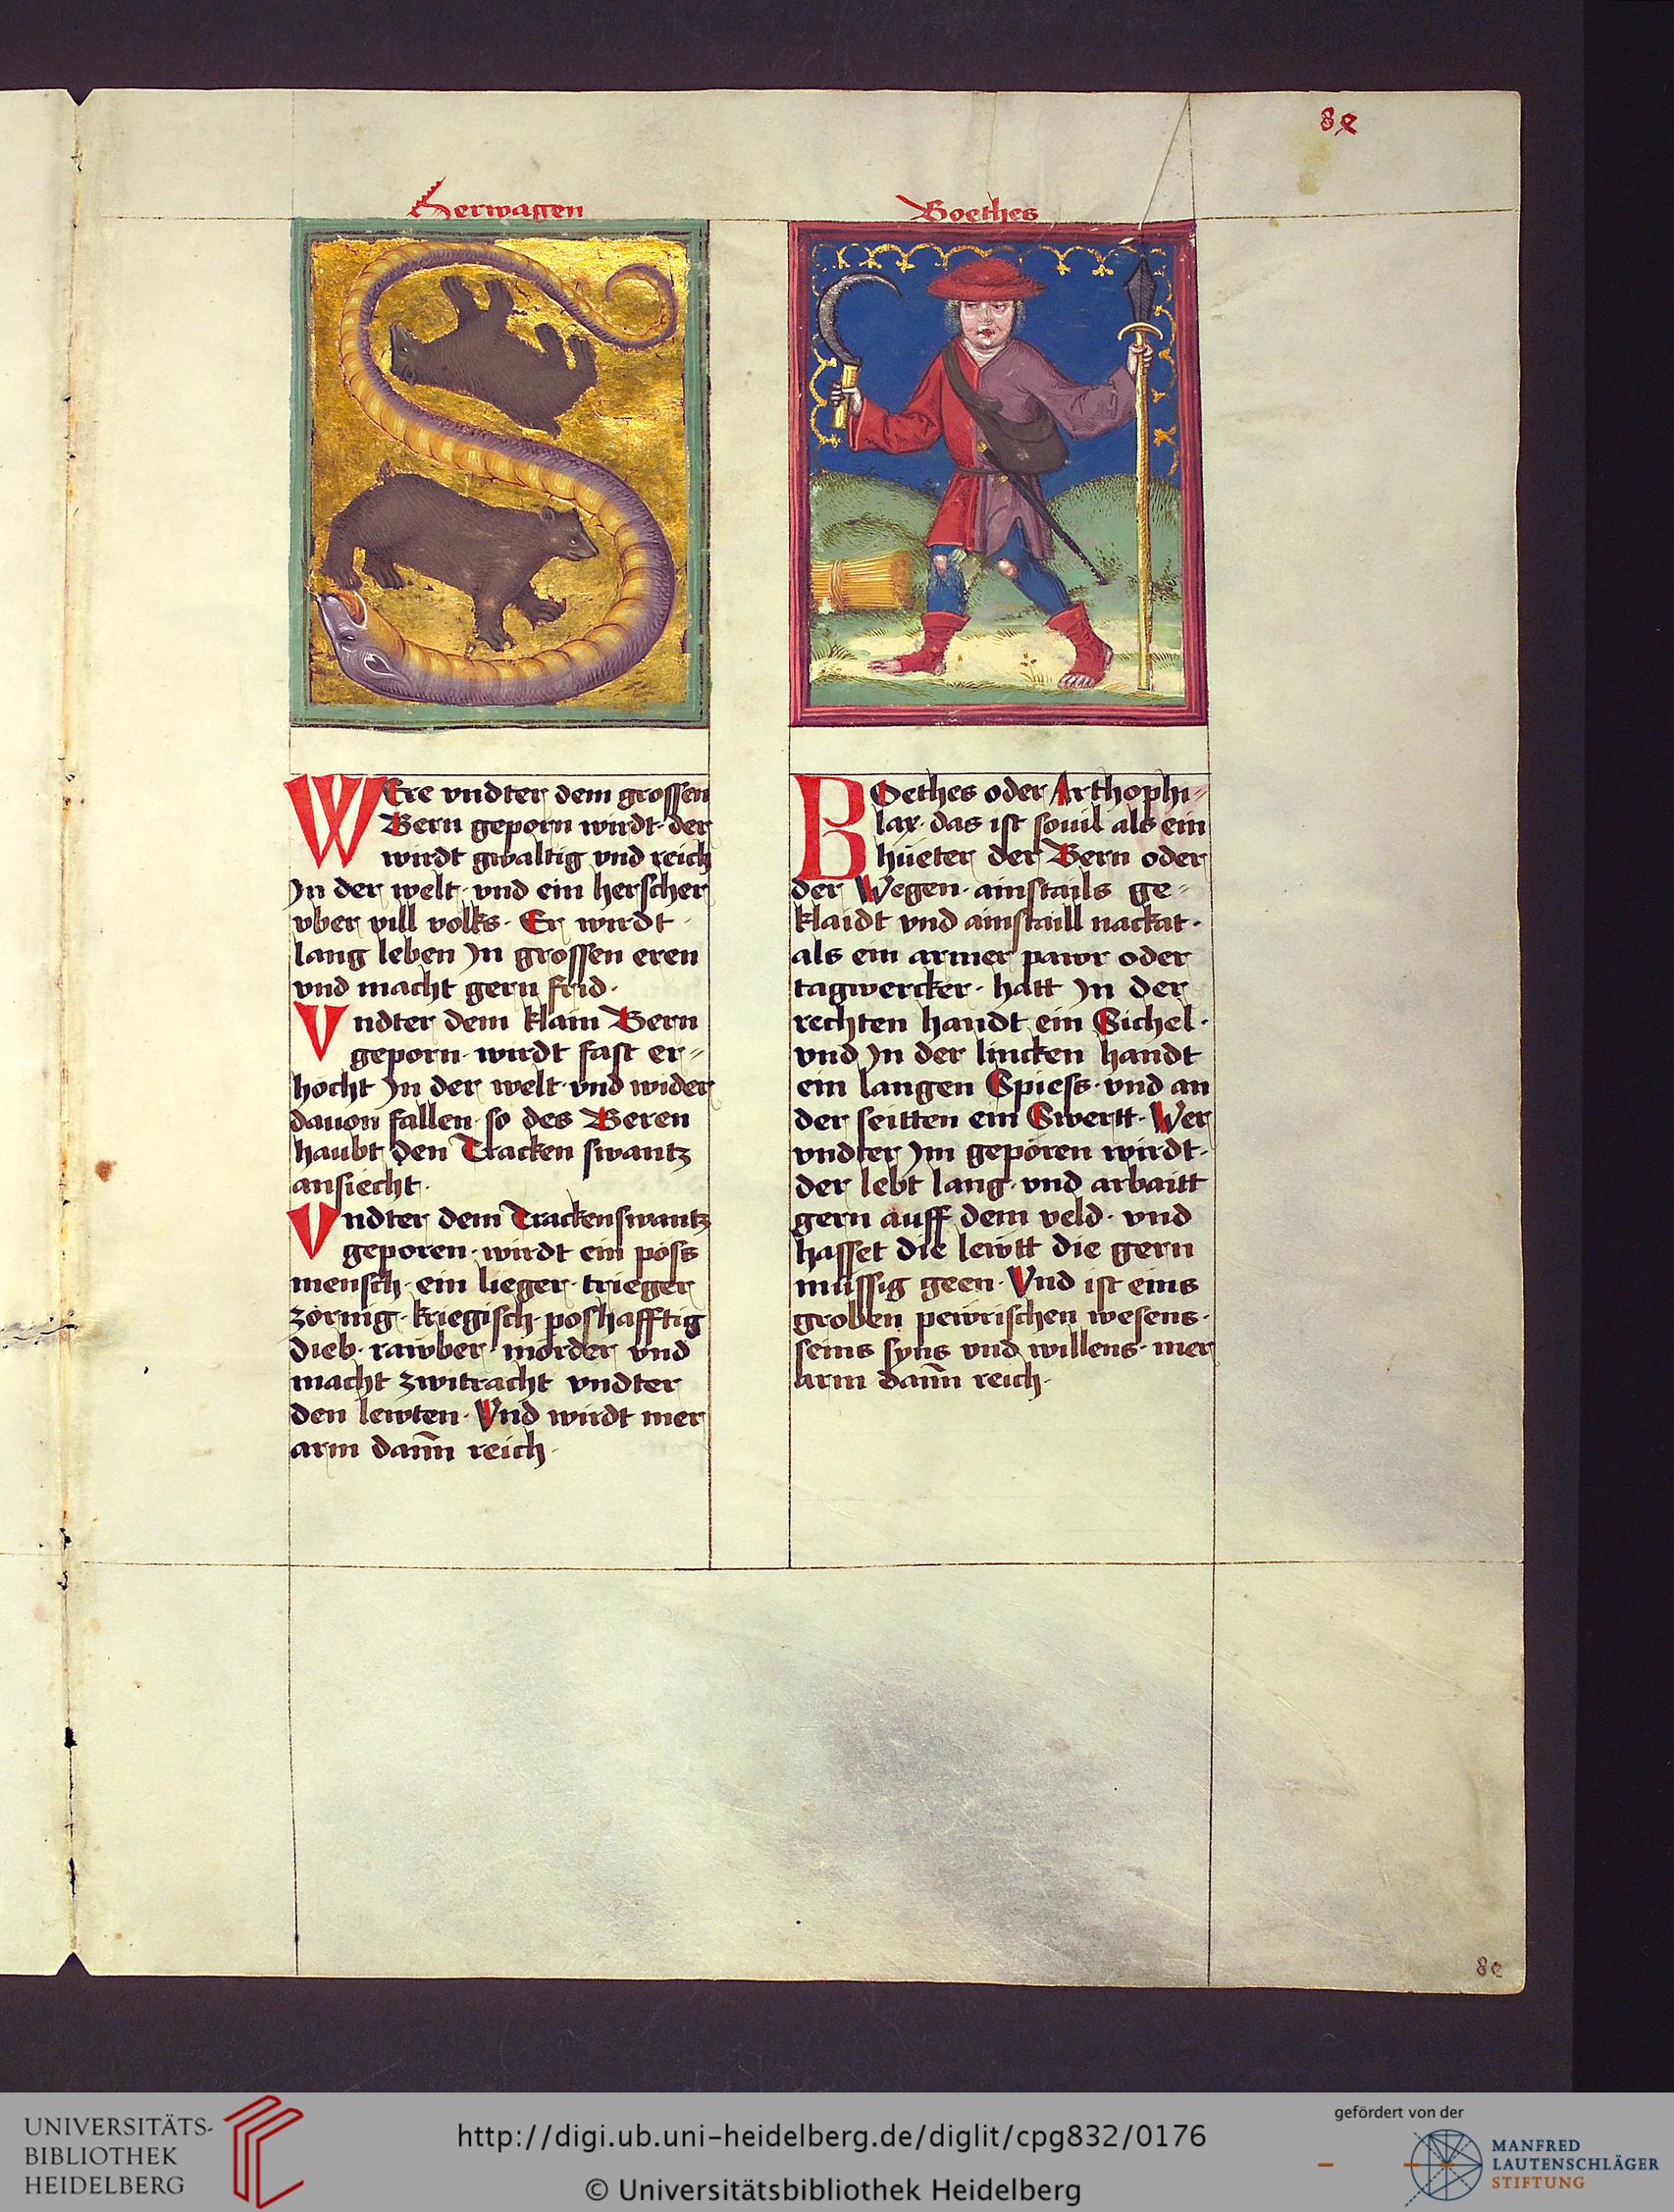 8e
Herwagen
WEre vndter dem grossen
Bern geporn wirdt· der
wirdt gwaltig vnd reich
Jn der welt· vnd ein herscher
vber vill volks· Er wirdt
lang leben Jn grossen eren
vnd macht gern frid·
Vndter dem klain Bern
geporn· wirdt fast er=
höcht Jn der welt· vnd wider
dauon fallen· so des Beren
haubt den Tracken swantz
ansiecht·
Vndter dem Trackenswantz
geporen· wirdt ein pöss
mensch· ein lieger· trieger
zörnig· kriegisch· poshafftig
dieb· rawber· mörder vnd
macht zwitracht vndter
den lewten· Vnd wirdt mer
arm dann̄ reich·
Boethes
BOethes oder Arthophi=
lax· das ist souil als ein
hüeter der Bern oder
der Wegen· ainstails ge=
klaidt vnd ainstaill nackat·
als ein armer pawr oder
tagwercker· hatt Jn der
rechten handt ein Sichel·
vnd Jn der lincken handt
ein langen Spiess· vnd an
der seitten ein Swertt· Wer
vndter Jm geporen wirdt·
der lebt lang· vnd arbaitt
gern auff dem veld· vnd
hasset die lewtt die gern
müssig geen· Vnd ist eins
groben pewrischen wesens·
seins syns vnd willens· mer
arm dann̄ reich·
8e
UNIVERSITÄTS-
BIBLIOTHEK
HEIDELBERG
http://digi.ub.uni-heidelberg.de/diglit/cpg832/0176
© Universitätsbibliothek Heidelberg
gefördert von der
MANFRED
LAUTENSCHLÄGER
STIFTUNG